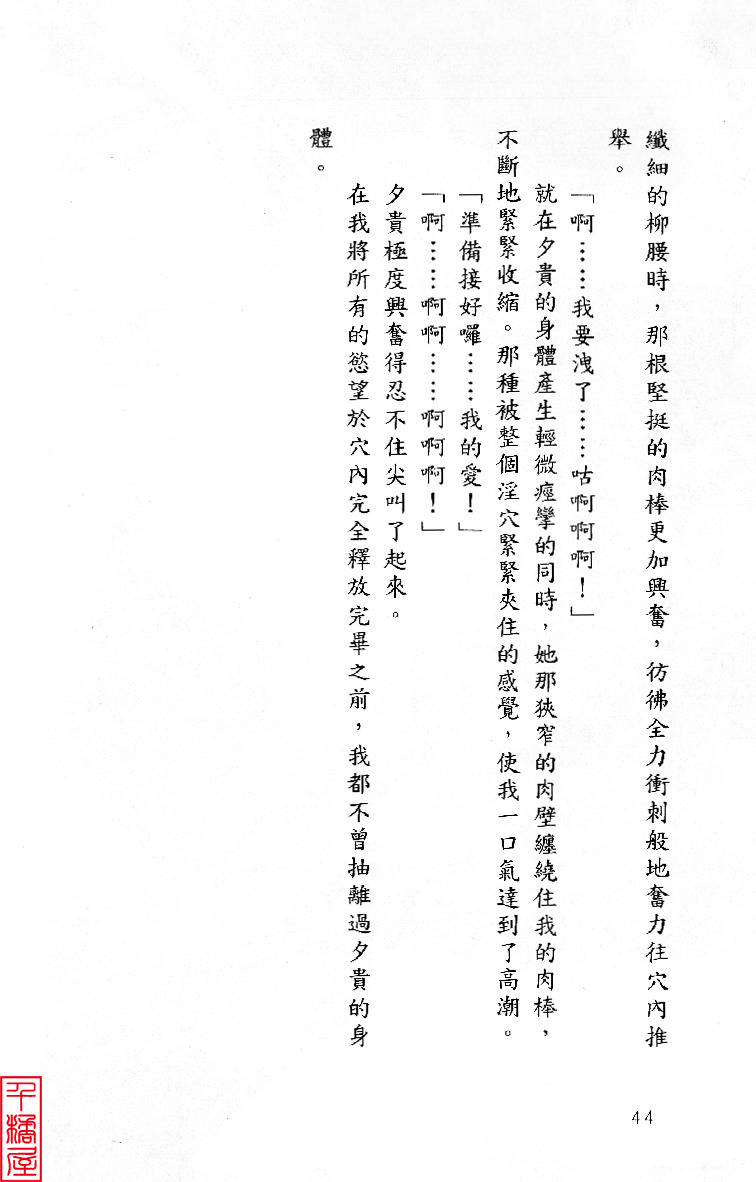 纖細的柳腰時，那根堅挺的肉棒更加興奮，彷彿全力衝刺般地奮力往穴內推
舉。
「啊……我要洩了……咕啊啊啊！」
就在夕貴的身體產生輕微痙攣的同時，她那狹窄的肉壁纏繞住我的肉棒，
不斷地緊緊收縮。那種被整個淫穴緊緊夾住的感覺，使我一口氣達到了高潮。
「準備接好囉……我的愛！」
「啊……啊啊……啊啊啊！」
夕貴極度興奮得忍不住尖叫了起來。
在我將所有的慾望於穴內完全釋放完畢之前，我都不曾抽離過夕貴的身
體。
44